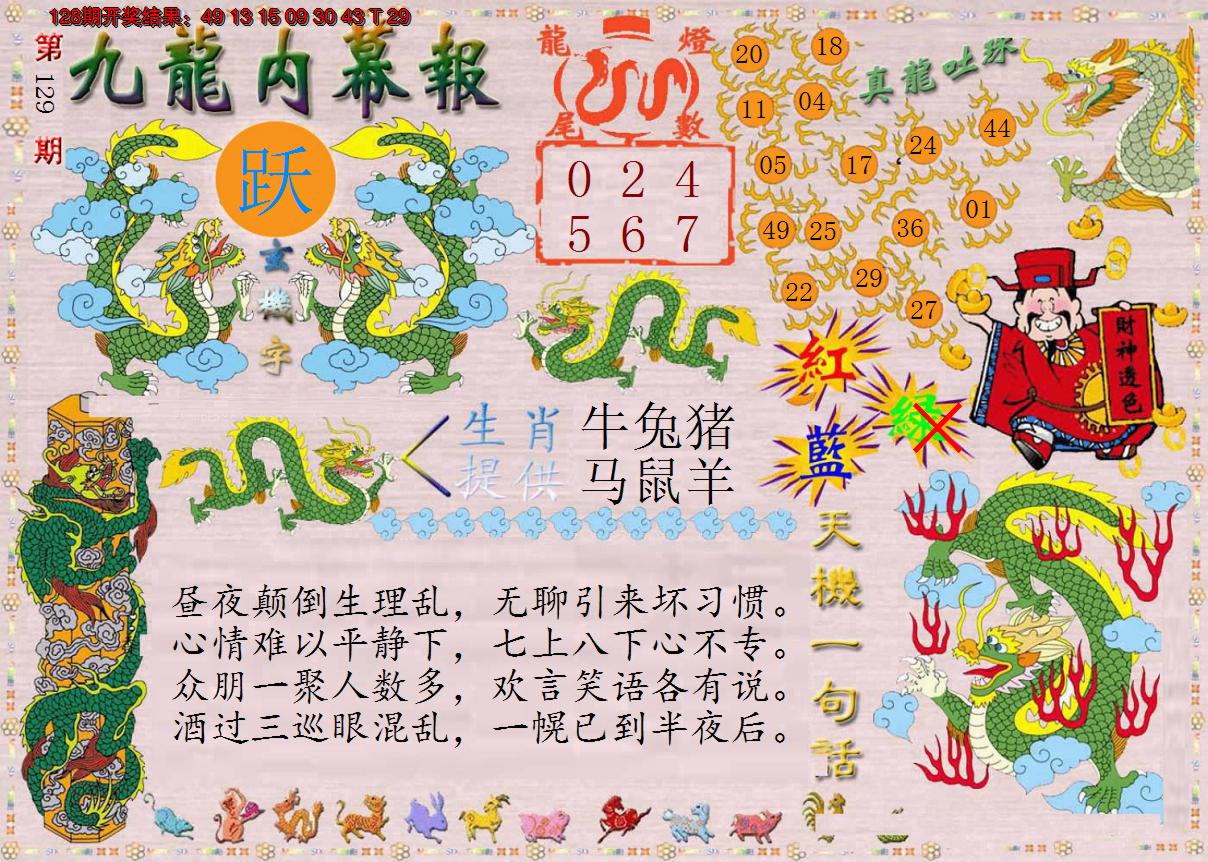 128期开奖结果：49 13 15 09 30 43 T 29
第129期
九龍内幕報
跃
玄機字
龍燈
尾數
0 2 4
5 6 7
真龍吐珠
20 18
11 04
05 17 24 44
49 25 36 01
22 29 27
紅
綠
藍
財神透色
生肖 牛兔猪
提供 马鼠羊
天機一句話
昼夜颠倒生理乱，无聊引来坏习惯。
心情难以平静下，七上八下心不专。
众朋一聚人数多，欢言笑语各有说。
酒过三巡眼混乱，一幌已到半夜后。